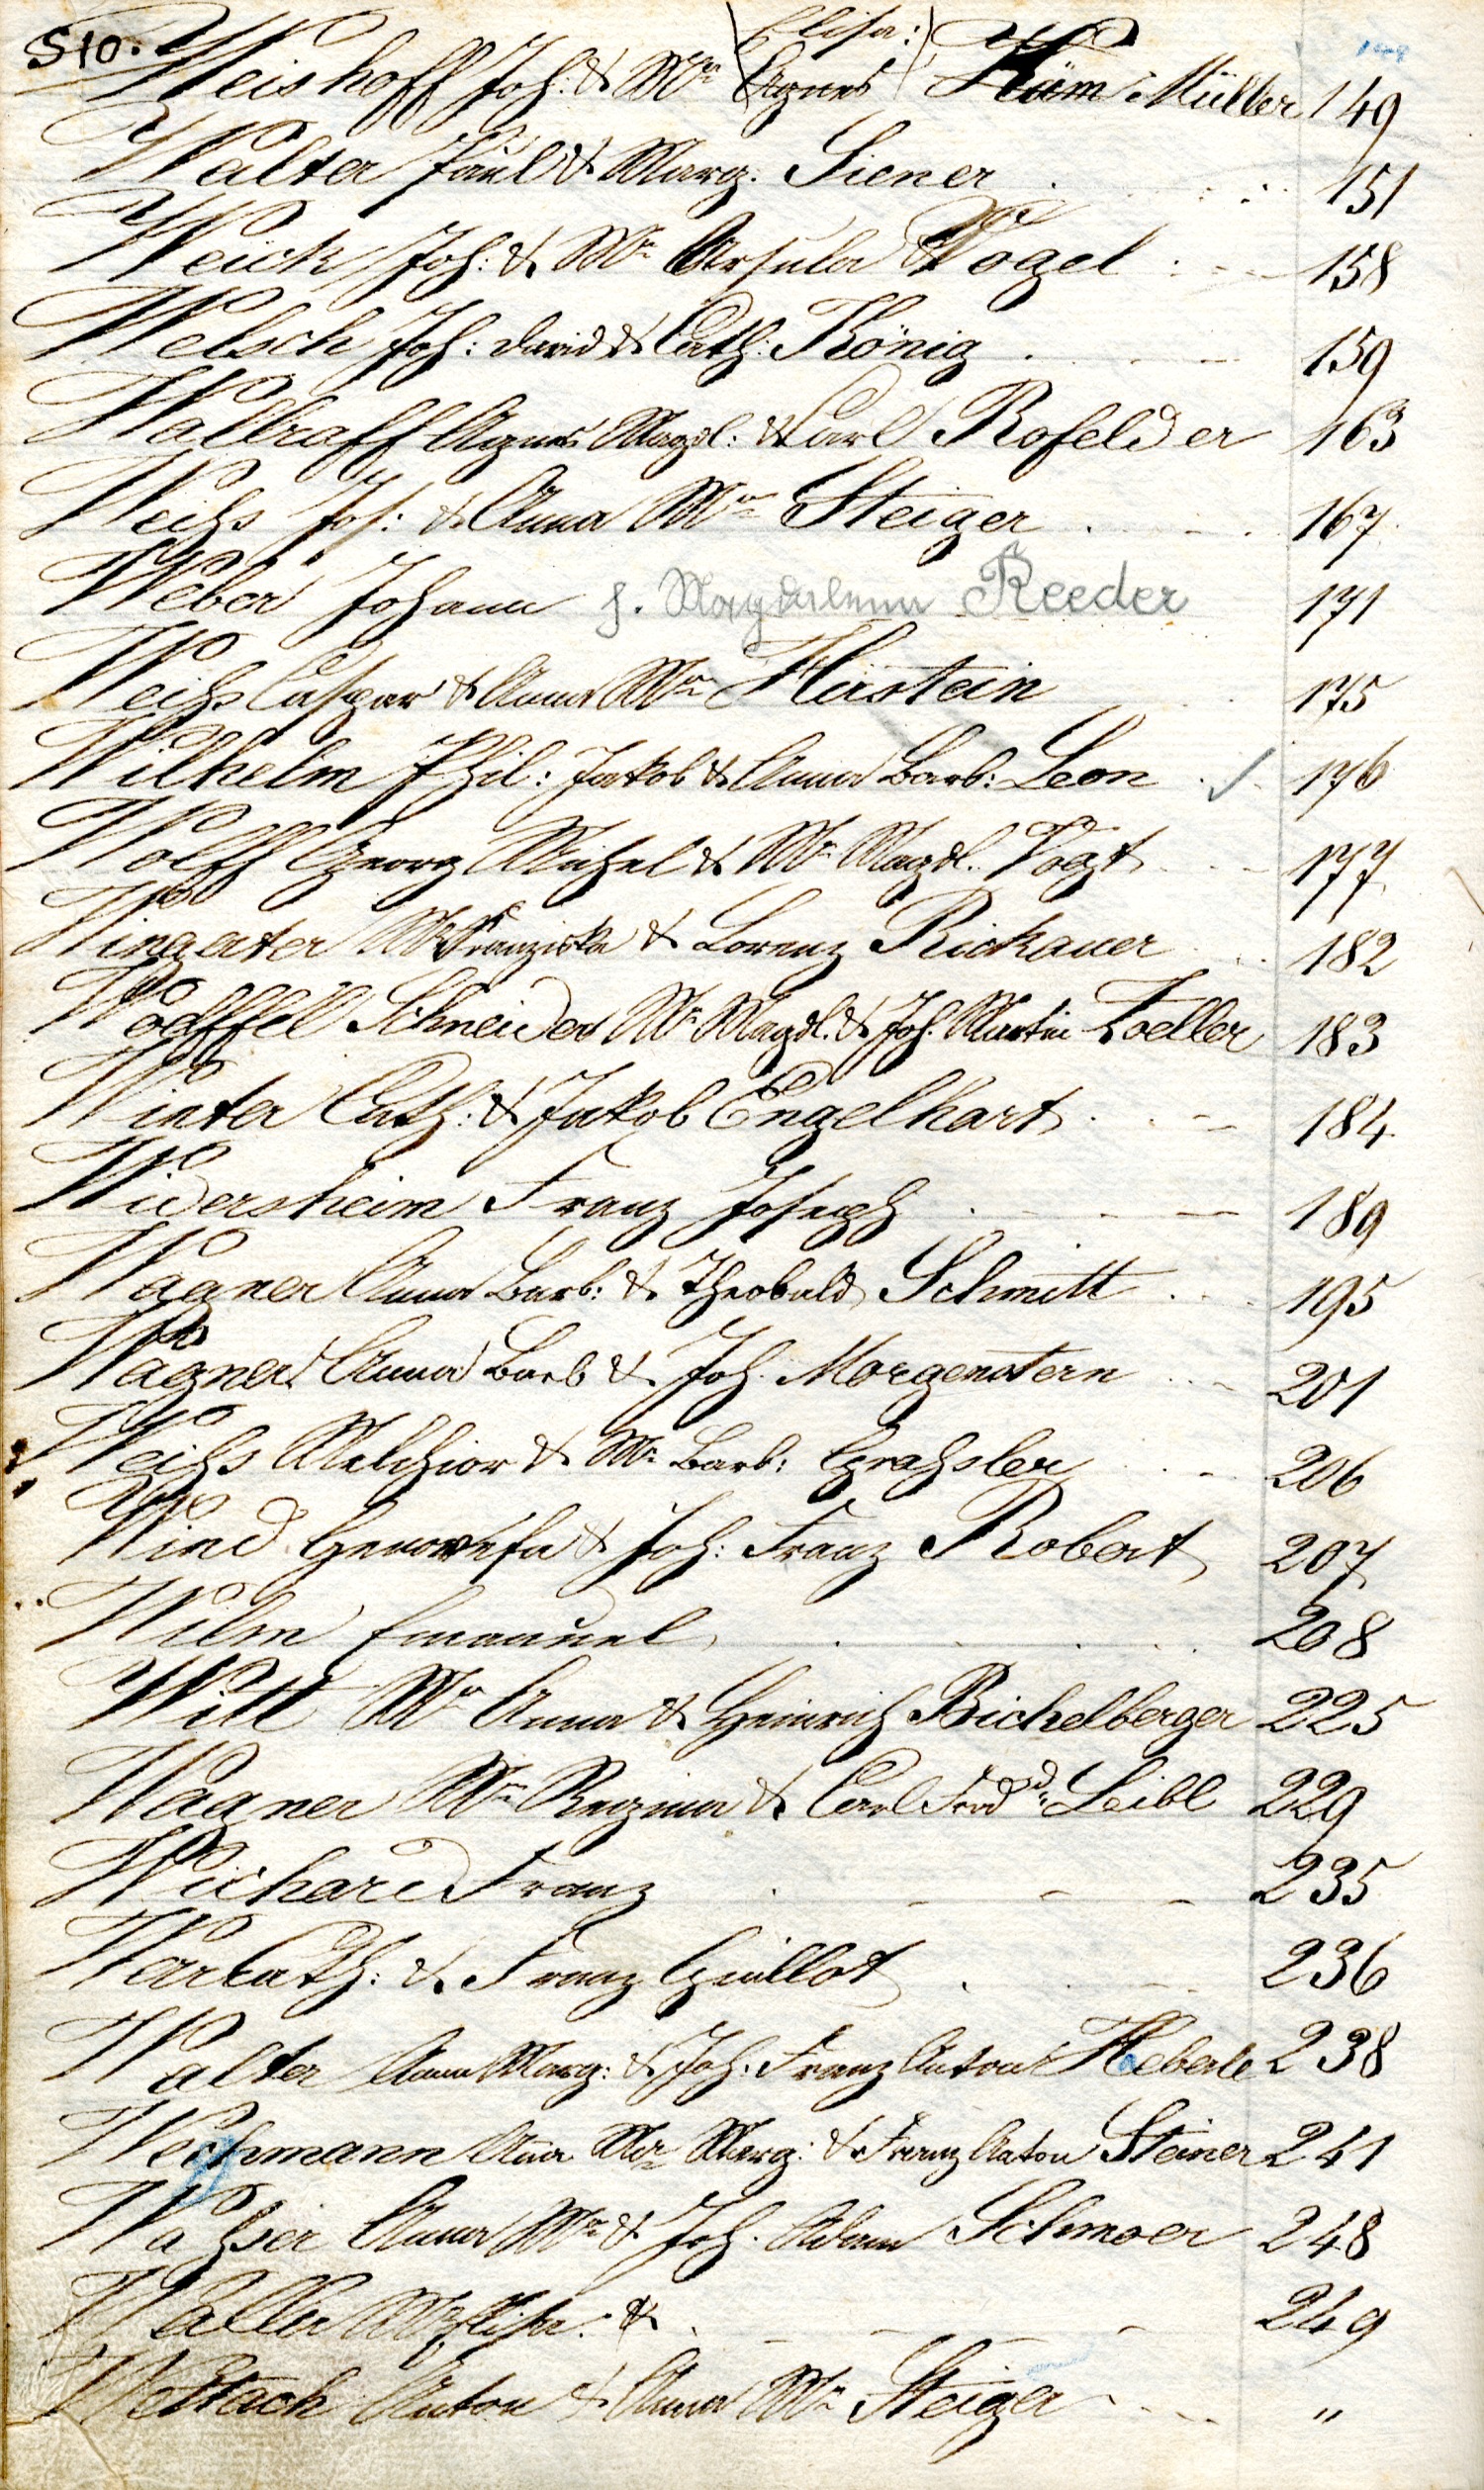 510.
Elisa:
149
Weishoff Joh: & Mra Agnes Häm Müller 149
Walter Paul & Marg. Siener 151
Weick Joh: & Mra Ursula Vogel 158
Welsch Joh: David & Cath: König 159
Wallraff Agnes Magdl: & Carl Rofelder 163
Weihs Jos: & Anna Mra Steiger 167
Weber Johann s. Magdalena Reeder 171
Weihs Caspar & Anna Mra Hirstein 175
Wilhelm Phil: Jakob & Anna Barb: Leon 176
Wolff Georg Michel & Mra Magdl. Vogt 177
Wingerter Mra Franziska & Lorenz Rickauer 182
Woelffel Schneider Mra Magdl. & Joh. Martin Zoeller 183
Winter Cath: & Jakob Engelhart 184
Widersheim Franz Joseph 189
Wagner Anna Barb: & Theobald Schmitt 195
Wagner Anna Barb & Joh. Morgenstern 201
Weihs Melchior & Mra Barb: Grahsler 206
Wind Genovefa & Joh: Franz Robert 207
Wilm Emanuel 208
Witt Mra Anna & Heinrich Bichelberger 225
Wagner Mra Regina & Carl Ferdd: Leibl 229
Wichard Franz 235
Cath: & Franz Guillot 236
Walter Anna Marg: & Joh: Franz Anton Heberle 238
Anna Mra Marg: & Franz Anton Steiner 241
Anna Mra & Joh. Adam Schmoer 248
Mra Elise: & 249
Wettach Anton & Anna Mra Steiger "